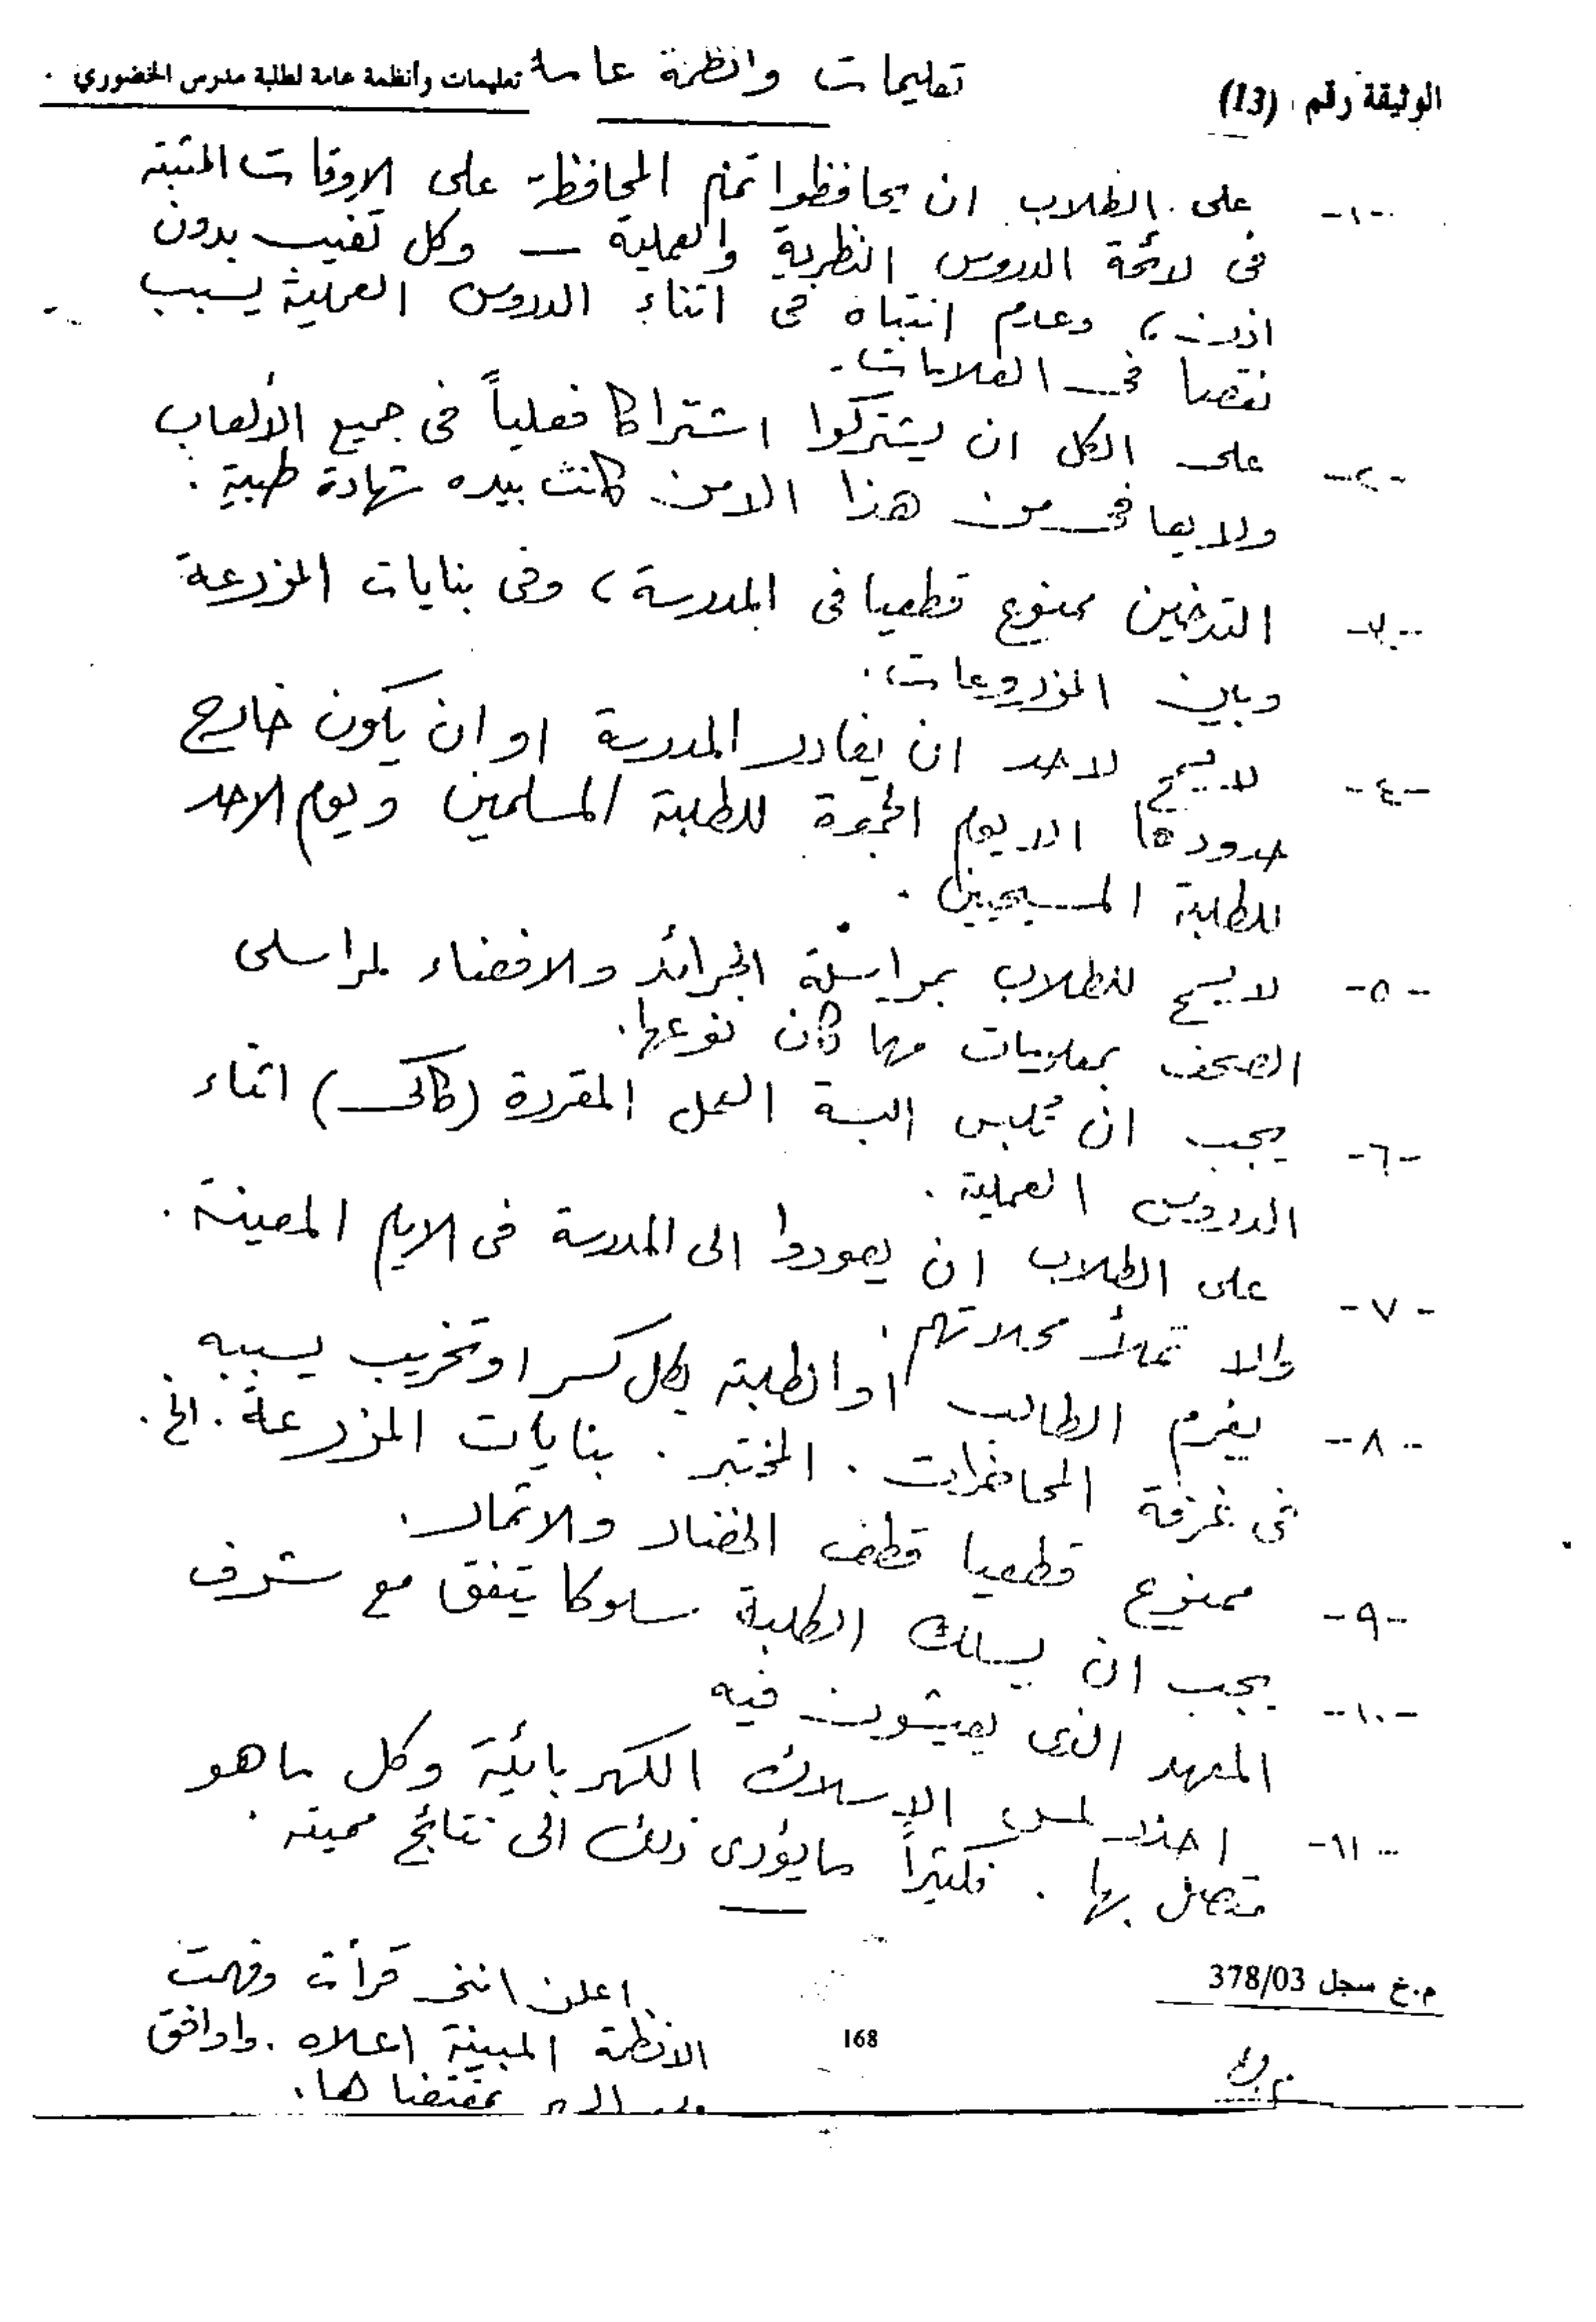 الوثيقة رقم (13)
تعليمات وأنظمة عامة لطلبة مدرس الخضوري .
تعليمات وانظمة عامة
-١- على الطلاب ان يحافظوا تمام المحافظة على الاوقات المثبته
في لائحة الدروس النظرية والعملية — وكل تغيب بدون
اذن، وعدم انتباه في اثناء الدروس العملية يسبب
نقصا في العلامات.
-٢- على الكل ان يشتركوا اشتراكا فعلياً في جميع الألعاب
ولا يعافى من هذا الا من كانت بيده شهادة طبية.
-٣- التدخين ممنوع قطعيا في المدرسة، وفي بنايات المزرعة
وبين المزروعات.
-٤- لا يسمح لاحد ان يغادر المدرسة او ان يكون خارج
حدودها الا يوم الجمعة للطلبة المسلمين ويوم الاحد
للطلبة المسيحيين.
-٥- لا يسمح للطلاب بمراسلة الجرائد ولا افضاء لمراسلي
الصحف بمعلومات مهما كان نوعها.
-٦- يجب ان تُلبس البسة العمل المقررة (كاكي) اثناء
الدروس العملية.
-٧- على الطلاب ان يعودوا الى المدرسة في الايام المعينة.
والا تملأ محلاتهم.
-٨- يغرم الطالب او الطلبة بكل كسر او تخريب يسببه
في غرفة المحاضرات. المختبر. بنايات المزرعة. الخ.
-٩- ممنوع قطعيا قطف الخضار والاثمار.
-١٠- يجب ان يسلك الطلبة سلوكا يتفق مع شرف
المعهد الذي يعيشون فيه
-١١- احذر لمس الاسلاك الكهربائية وكل ما هو
متصل بها. فكثيراً ما يؤدي ذلك الى نتائج مميته.
م.خ سجل 378/03
اعلن انني قرأت وفهمت
الانظمة المبينة اعلاه. واوافق
بمقتضاها.
168